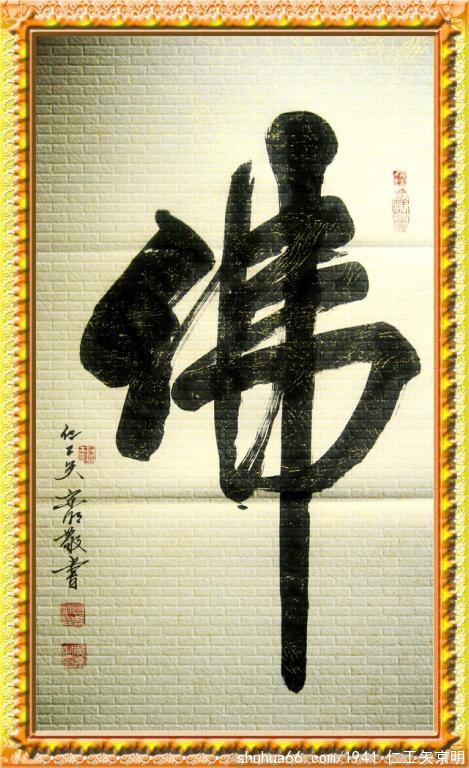 佛
仁工矢京明敬書
shuhua66.com/1941 仁工矢京明